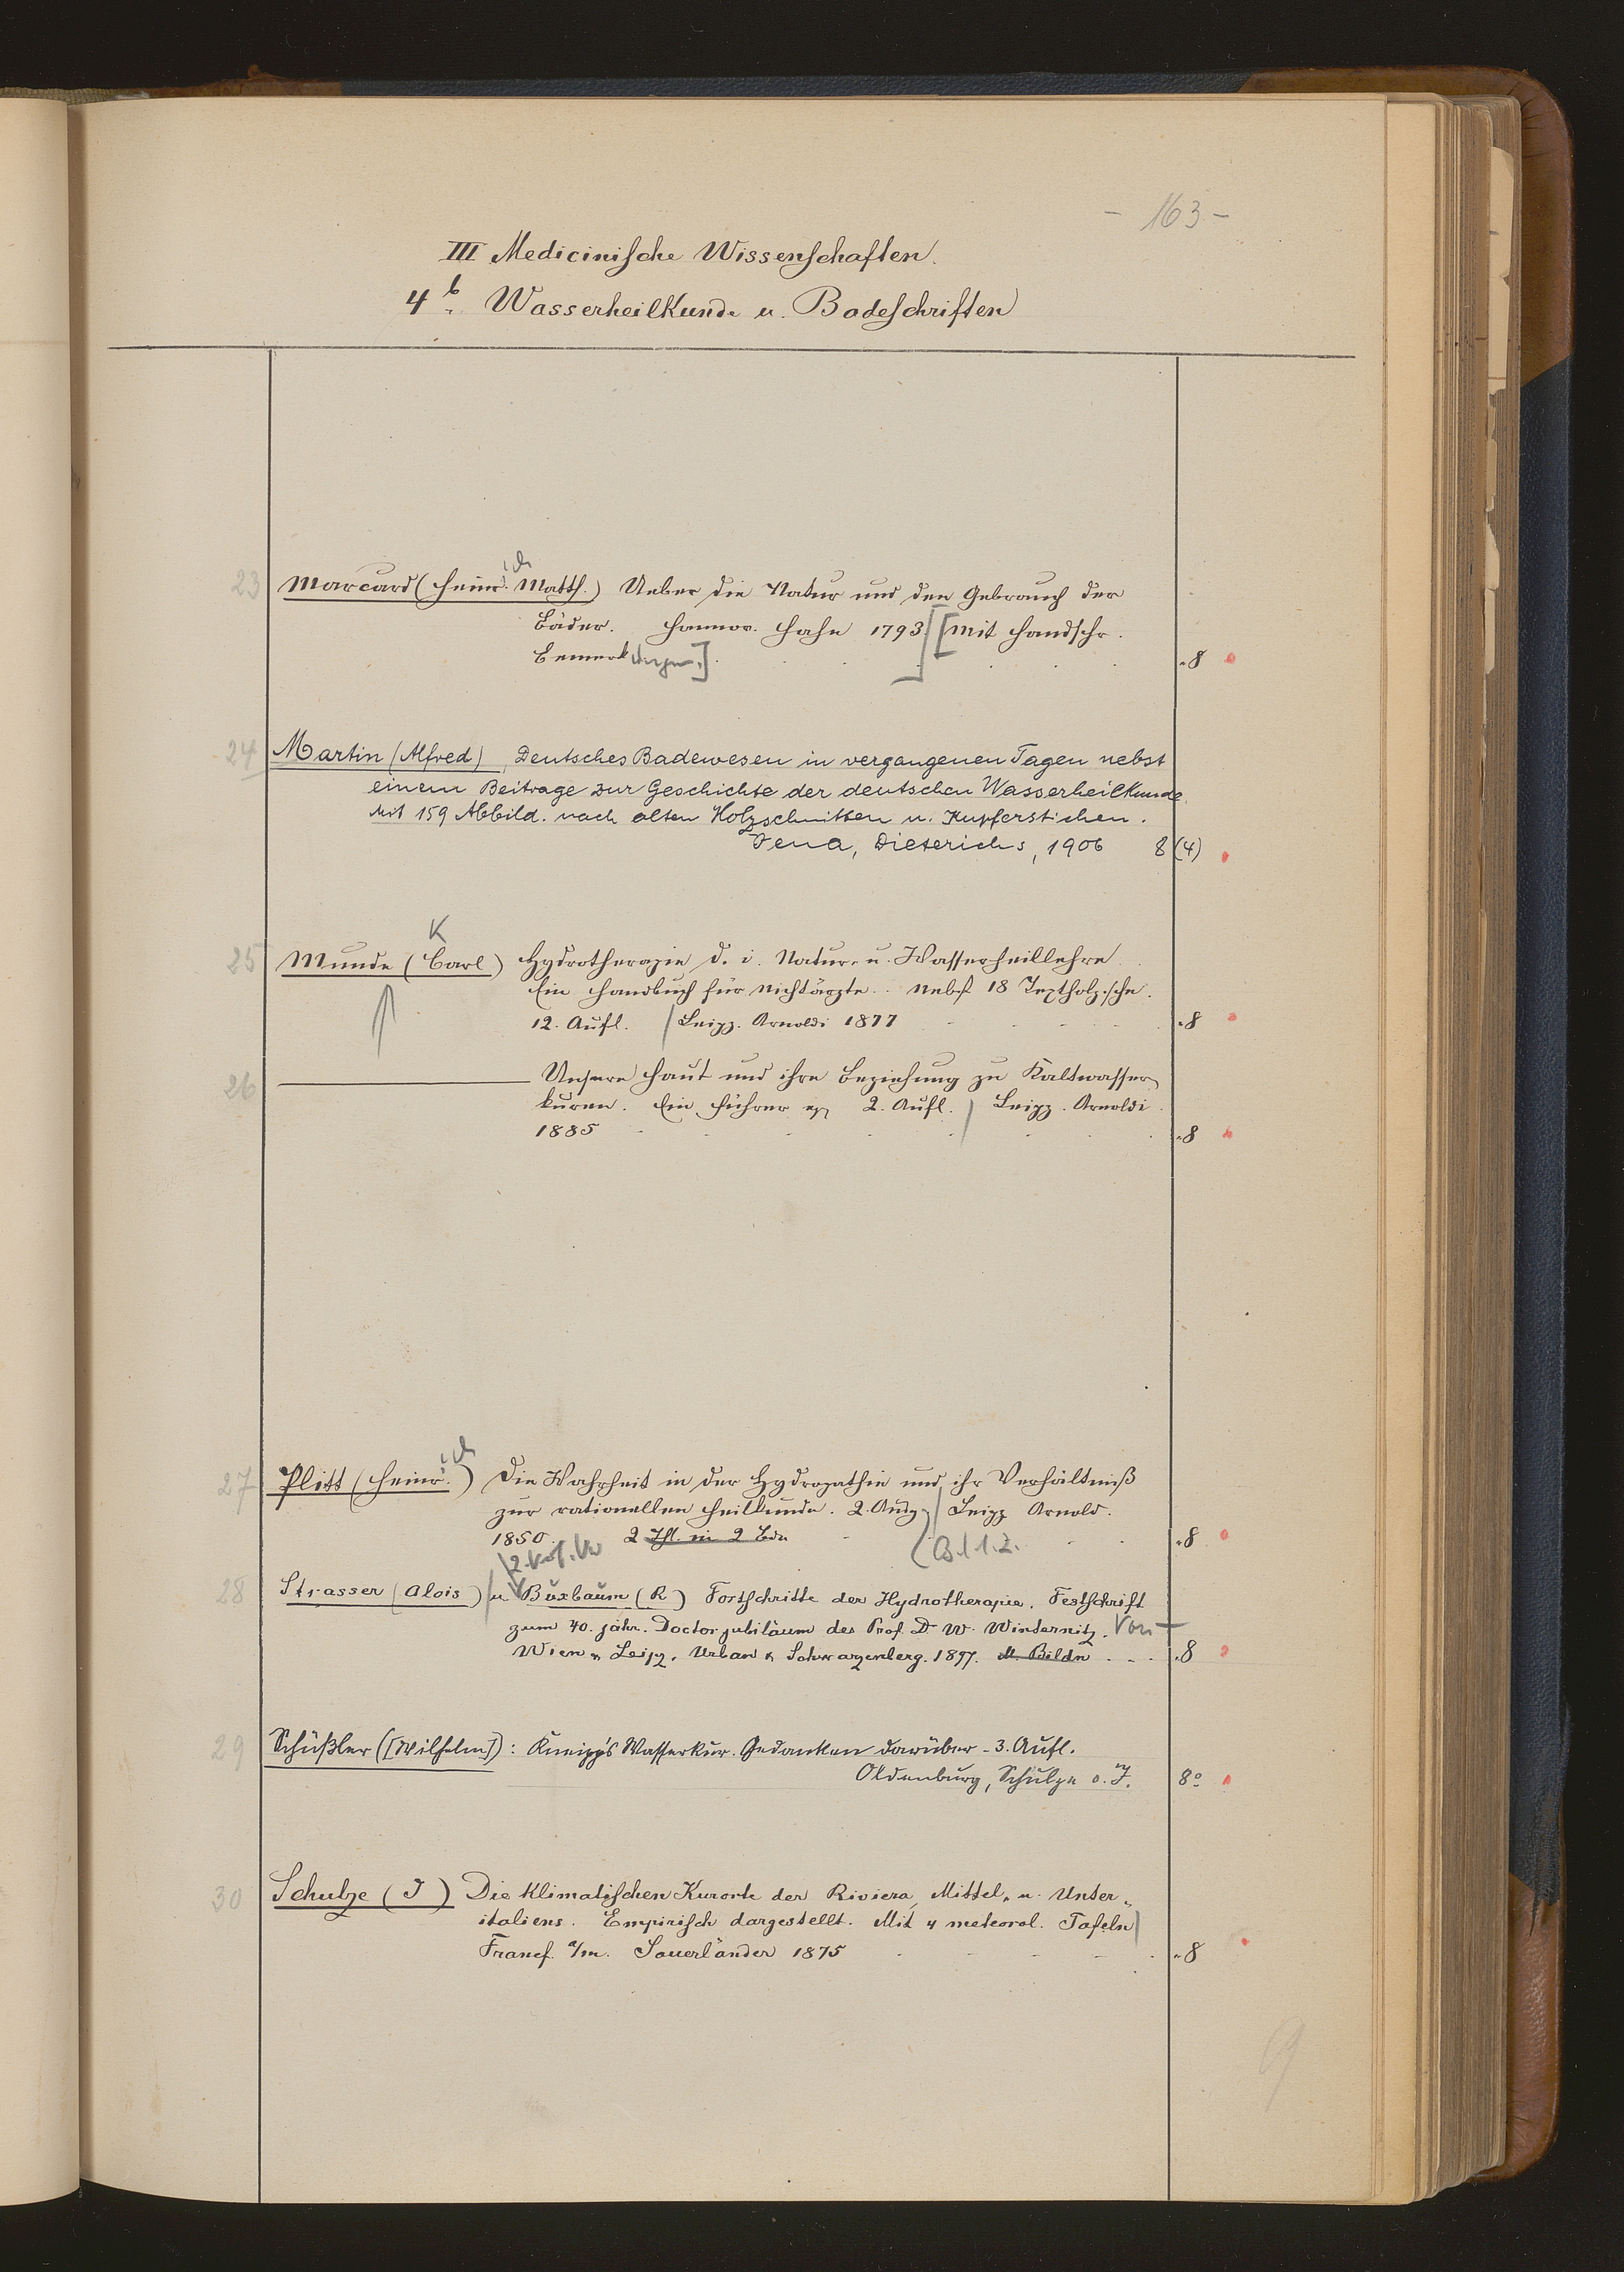 - 163 -
III Medicinische Wissenschaften.
4b. Wasserheilkunde u. Badeschriften
23 Marcard (Heinrich Matth.) Ueber die Natur und den Gebrauch der
Bäder. Hannov. Hahn 1793 [Mit handschr.
Bemerkungen.] 8
24 Martin (Alfred), Deutsches Badewesen in vergangenen Tagen nebst
einem Beitrage zur Geschichte der deutschen Wasserheilkunde.
Mit 159 Abbild. nach alten Holzschnitten u. Kupferstichen.
Jena, Dieterichs, 1906 8 (4)
K
25 Munde (Carl) Hydrotherapie d. i. Natur- u. Wasserheillehre
Ein Handbuch für Nichtärzte. Nebst 18 Textholzschn.
12. Aufl. Leipz. Arnoldi 1877 8
26 ——— Unsere Haut und ihre Beziehung zu Kaltwasser-
kuren. Ein Führer 2. Aufl. Leipz. Arnoldi
1885 8
27 Plitt (Heinrich) Die Wahrheit in der Hydropathie und ihr Verhältniß
zur rationellen Heilkunde. 2. Ausg. Leipz Arnold.
1850 2 Thl. in 2 Bdn 8
Bd 1.2.
28 Strasser (Alois) u Buxbaum (R) Fortschritte der Hydrotherapie. Festschrift
zum 40. jähr. Doctorjubiläum des Prof. Dr W. Winternitz. Von
Wien & Leipz. Urban & Schwarzenberg. 1897. M. Bildn 8
29 Schüßler ([Wilhelm]): Kneipp's Wasserkur. Gedanken darüber - 3. Aufl.
Oldenburg, Schulze o. J. 8°
30 Schulze (J) Die klimatischen Kurorte der Riviera, Mittel- u. Unter-
italiens. Empirisch dargestellt. Mit 4 meteorol. Tafeln
Francf. a/m. Sauerländer 1875 8